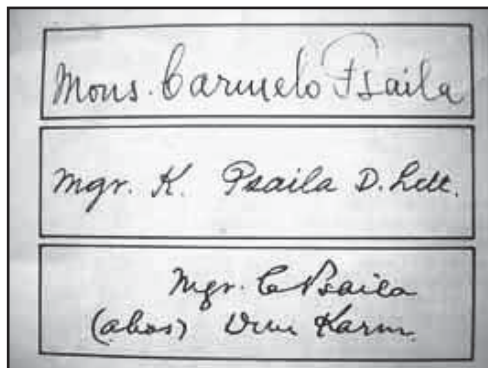 Mons. Carmelo Psaila
Mgr. K. Psaila D. Litt.
Mgr. C Psaila
(alias) Dun Karm.